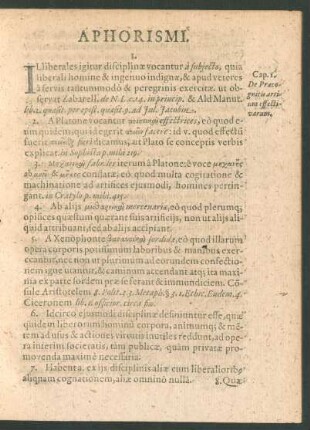 APHORISMI.
1.
ILliberales igitur disciplinæ vocantur à subjecto, quia
liberali homine & ingenuo indignæ, & apud veteres
à servis tantummodo & peregrinis exercitæ. ut ob-
servat Zabarell. de N. L. in princip. & Ald Manut.
Cap. 1.
De Præro-
gativa arti-
um effecti-
varum.
2. A Platone vocantur effectrices, eò quod e-
quidem, quid egerit facere: id v. quod effectũ
fuerit, fieri dicamus, ut Plato se conceptis verbis
explicat in Sophista p. mihi
3. iterum à Platone; è voce
ab & constat, eò quod multa cogitatione &
machinatione ad artifices ejusmodi, homines pertin-
gant. in Cratylo p. mihi 415.
4. Ab aliis mercenariæ, eò quod plerumq;
opifices quæstum quærant suis artificiis, non ut alii si quid
attribuant, sed ab aliis accipiant.
5. A Xenophonte sordidæ, eò quod illarum
opera corporis potissimum laboribus & manibus exer-
ceantur, nec non ut plurimum ad eorundem confectio-
nem igne utantur, & caminum ascendant atq; ita maxi-
ma ex parte sordem præ se ferant & immundiciem. Con-
sule Aristotelem 8. Polit. 2. 3. Metaph. 1. Ethic. Eudem. 4.
Ciceronem lib. 1. officior. circa fin.
6. Idcirco ejusmodi disciplinæ definiuntur esse, quæ
quidem in liberorum hominũ corpora, animumq; & men-
tem ad usus & actiones virtutis inutiles reddunt, ad ope-
ra interim societatis, tam publicæ, quam privatæ pro-
movenda maximè necessaria.
7. Habent a. ex iis disciplinis aliæ cum liberalioribus
aliquam cognationem, aliæ omninò nullã.
8. Quæ